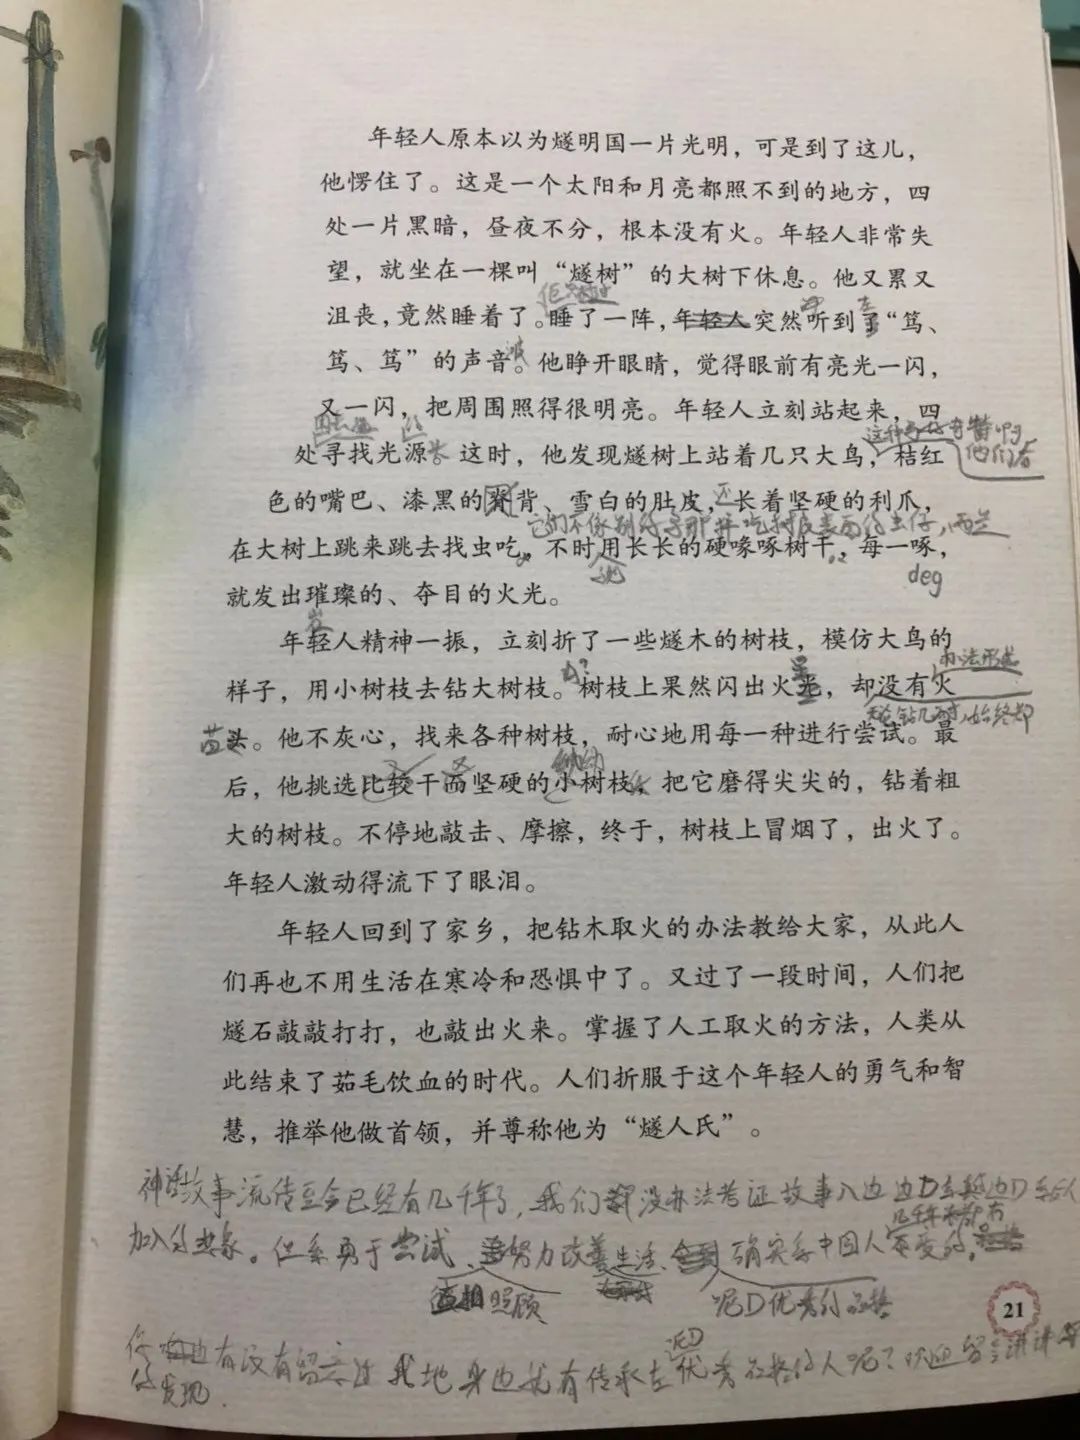 年轻人原本以为燧明国一片光明，可是到了这儿，
他愣住了。这是一个太阳和月亮都照不到的地方，四
处一片黑暗，昼夜不分，根本没有火。年轻人非常失
望，就坐在一棵叫“燧树”的大树下休息。他又累又
沮丧，竟然睡着了。睡了一阵，年轻人突然听到了“笃、
笃、笃”的声音。他睁开眼睛，觉得眼前有亮光一闪，
又一闪，把周围照得很明亮。年轻人立刻站起来，四
处寻找光源。这时，他发现燧树上站着几只大鸟，桔红
色的嘴巴、漆黑的脊背、雪白的肚皮，长着坚硬的利爪，
还
在大树上跳来跳去找虫吃。不时用长长的硬喙啄树干，每一啄，
deg
就发出璀璨的、夺目的火光。
年轻人精神一振，立刻折了一些燧木的树枝，模仿大鸟的
办法形式
样子，用小树枝去钻大树枝。树枝上果然闪出火光，却没有火
始终却
苗头。他不灰心，找来各种树枝，耐心地用每一种进行尝试。最
后，他挑选比较干而坚硬的小树枝，把它磨得尖尖的，钻着粗
大的树枝。不停地敲击、摩擦，终于，树枝上冒烟了，出火了。
年轻人激动得流下了眼泪。
年轻人回到了家乡，把钻木取火的办法教给大家，从此人
们再也不用生活在寒冷和恐惧中了。又过了一段时间，人们把
燧石敲敲打打，也敲出火来。掌握了人工取火的方法，人类从
此结束了茹毛饮血的时代。人们折服于这个年轻人的勇气和智
慧，推举他做首领，并尊称他为“燧人氏”。
神话故事流传至今已经有几千年了，我们没办法考证故事入边
几千年来都有
加入的想象。但系勇于尝试、努力改善生活、确实系中国人
照顾
呢D优秀的品格
21
呢D
你身边有没有留意过 我地身边就有传承左优秀品格的人呢？欢迎留言讲讲
你的发现.